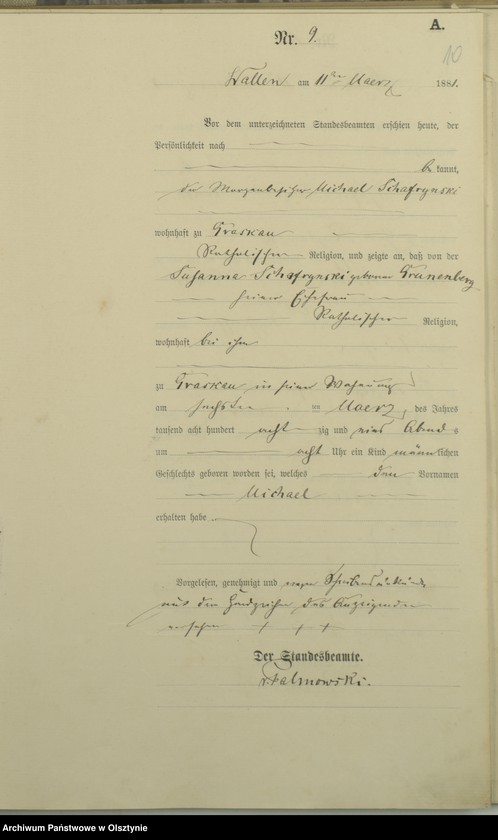 A.
10
Nr. 9.
Wallen am 11ten Maerz 1881.
Vor dem unterzeichneten Standesbeamten erschien heute, der
Persönlichkeit nach
be kannt,
der Morgenbesitzer Michael Schafrynski
wohnhaft zu Graskau
Katholischer Religion, und zeigte an, daß von der
Susanna Schafrynski geborene Grunenberg
seiner Ehefrau
Katholischer Religion,
wohnhaft bei ihm
zu Graskau in seiner Wohnung
am sechsten Maerz, des Jahres
tausend acht hundert acht zig und eins Abend s
um acht Uhr ein Kind männlichen
Geschlechts geboren worden sei, welches den Vornamen
Michael
erhalten habe
Vorgelesen, genehmigt und wegen Schreibensunkunde
mit den Handzeichen des Anzeigenden
versehen + + +
Der Standesbeamte.
v. Palmowski.
Archiwum Państwowe w Olsztynie